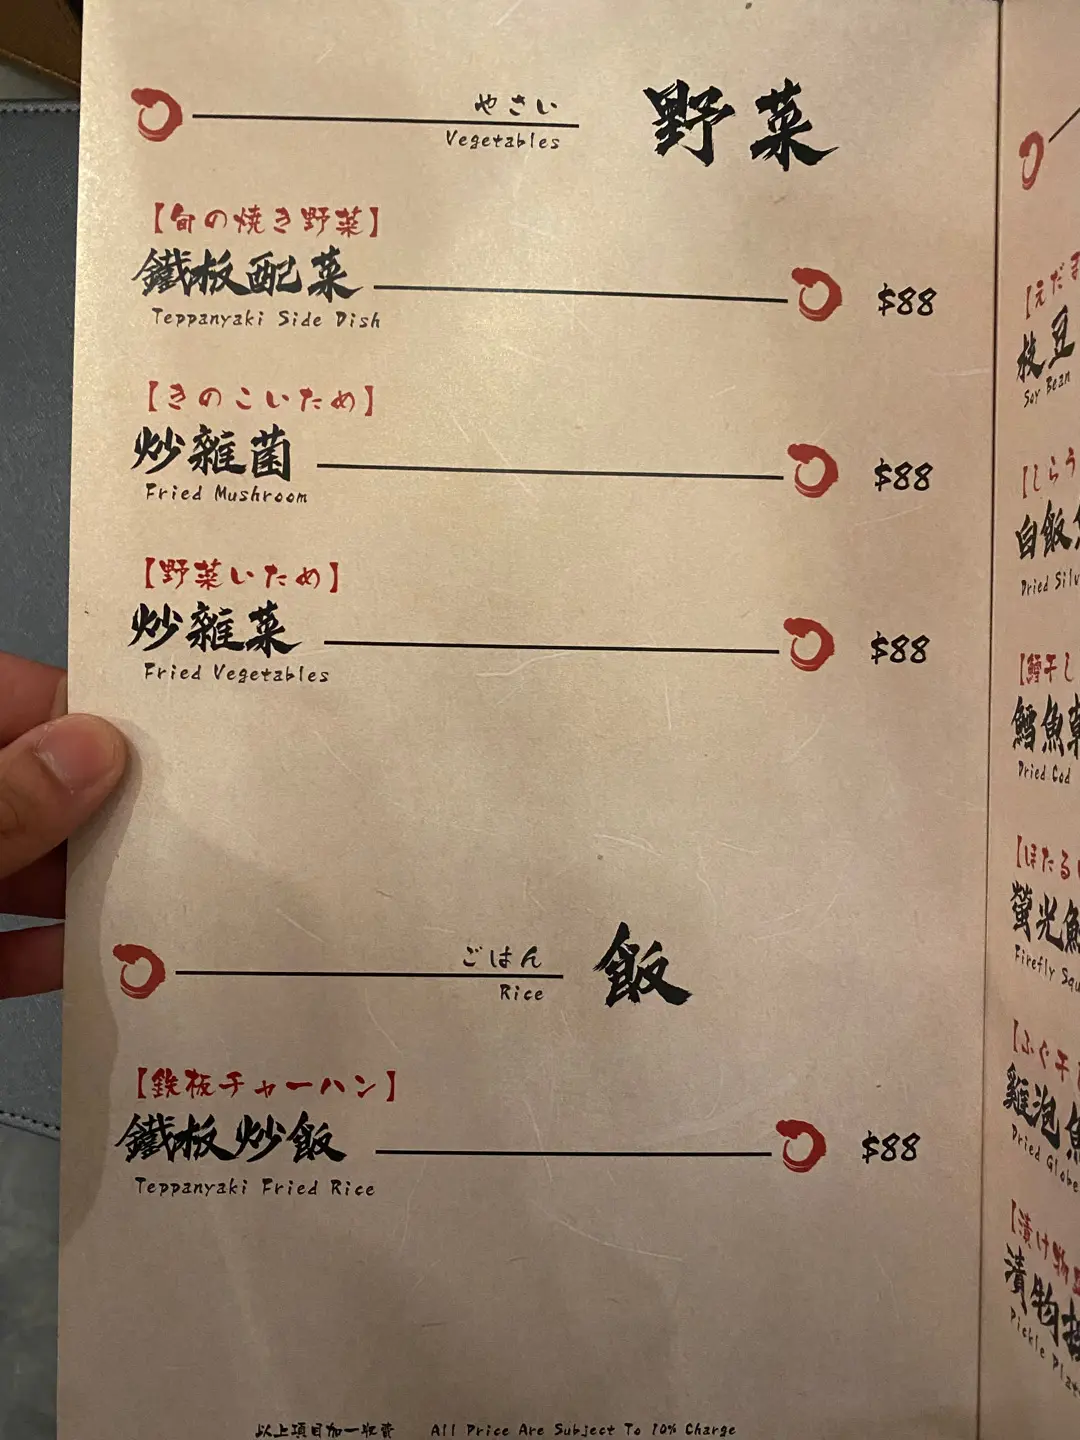 やさい
野菜
Vegetables
【旬の焼き野菜】
鐵板配菜
$88
Teppanyaki Side Dish
【きのこいため】
炒雜菌
$88
Fried Mushroom
【野菜いため】
炒雜菜
$88
Fried Vegetables
ごはん
飯
Rice
【鉄板チャーハン】
鐵板炒飯
$88
Teppanyaki Fried Rice
以上項目加一收費 All Price Are Subject To 10% Charge
【えだま
枝豆
Soy Bean
【しらう
白飯魚
Dried Silv
【鱈干し
鱈魚乾
Dried Cod
【ほたるい
螢光魷
Firefly Squ
【ふぐ干
雞泡魚
Dried Globe
【漬け物
漬物
Pickle Plat